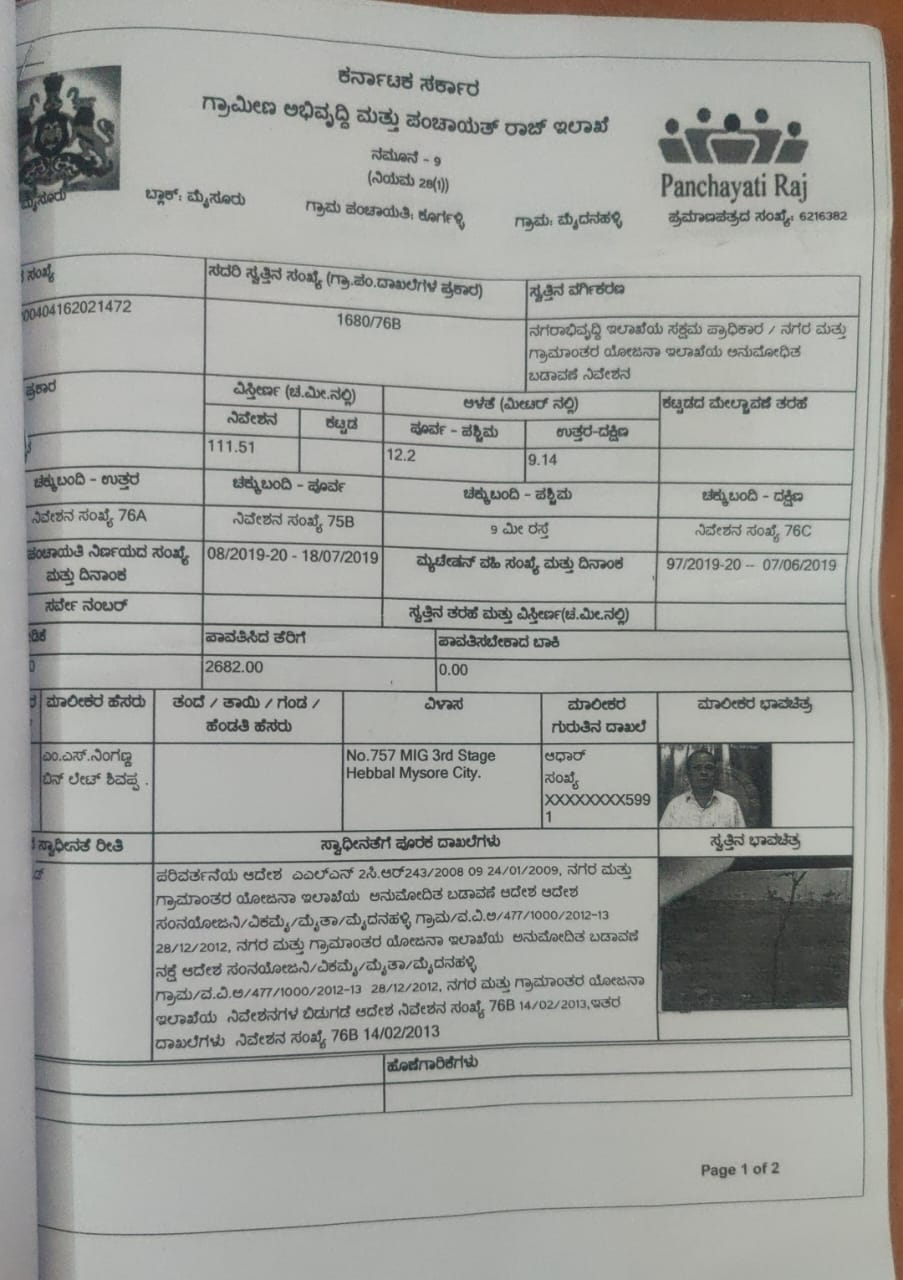 ಕರ್ನಾಟಕ ಸರ್ಕಾರ
ಗ್ರಾಮೀಣ ಅಭಿವೃದ್ಧಿ ಮತ್ತು ಪಂಚಾಯತ್ ರಾಜ್ ಇಲಾಖೆ
ನಮೂನೆ - 9
(ನಿಯಮ 28(1))
Panchayati Raj
ಮೈಸೂರು ಬ್ಲಾಕ್: ಮೈಸೂರು ಗ್ರಾಮ ಪಂಚಾಯತಿ: ಕೂರ್ಗಳ್ಳಿ ಗ್ರಾಮ: ಮೈದನಹಳ್ಳಿ ಪ್ರಮಾಣಪತ್ರದ ಸಂಖ್ಯೆ: 6216382
ಸಂಖ್ಯೆ ಸದರಿ ಸ್ವತ್ತಿನ ಸಂಖ್ಯೆ (ಗ್ರಾ.ಪಂ.ದಾಖಲೆಗಳ ಪ್ರಕಾರ) ಸ್ವತ್ತಿನ ವರ್ಗಿಕರಣ
00404162021472 1680/76B ನಗರಾಭಿವೃದ್ಧಿ ಇಲಾಖೆಯ ಸಕ್ಷಮ ಪ್ರಾಧಿಕಾರ / ನಗರ ಮತ್ತು
ಗ್ರಾಮಾಂತರ ಯೋಜನಾ ಇಲಾಖೆಯ ಅನುಮೋಧಿತ
ಬಡಾವಣೆ ನಿವೇಶನ
ಪ್ರಕಾರ ವಿಸ್ತೀರ್ಣ (ಚ.ಮೀ.ನಲ್ಲಿ) ಅಳತೆ (ಮೀಟರ್ ನಲ್ಲಿ) ಕಟ್ಟಡದ ಮೇಲ್ಚಾವಣೆ ತರಹೆ
ನಿವೇಶನ ಕಟ್ಟಡ ಪೂರ್ವ - ಪಶ್ಚಿಮ ಉತ್ತರ-ದಕ್ಷಿಣ
111.51 12.2 9.14
ಚಕ್ಕುಬಂದಿ - ಉತ್ತರ ಚಕ್ಕುಬಂದಿ - ಪೂರ್ವ ಚಕ್ಕುಬಂದಿ - ಪಶ್ಚಿಮ ಚಕ್ಕುಬಂದಿ - ದಕ್ಷಿಣ
ನಿವೇಶನ ಸಂಖ್ಯೆ 76A ನಿವೇಶನ ಸಂಖ್ಯೆ 75B 9 ಮೀ ರಸ್ತೆ ನಿವೇಶನ ಸಂಖ್ಯೆ 76C
ಪಂಚಾಯತಿ ನಿರ್ಣಯದ ಸಂಖ್ಯೆ 08/2019-20 - 18/07/2019 ಮ್ಯುಟೇಶನ್ ವಹಿ ಸಂಖ್ಯೆ ಮತ್ತು ದಿನಾಂಕ 97/2019-20 -- 07/06/2019
ಮತ್ತು ದಿನಾಂಕ
ಸರ್ವೇ ನಂಬರ್ ಸ್ವತ್ತಿನ ತರಹೆ ಮತ್ತು ವಿಸ್ತೀರ್ಣ(ಚ.ಮೀ.ನಲ್ಲಿ)
ಪಾವತಿಸಿದ ತೆರಿಗೆ ಪಾವತಿಸಬೇಕಾದ ಬಾಕಿ
2682.00 0.00
ಮಾಲೀಕರ ಹೆಸರು ತಂದೆ / ತಾಯಿ / ಗಂಡ / ವಿಳಾಸ ಮಾಲೀಕರ ಮಾಲೀಕರ ಭಾವಚಿತ್ರ
ಹೆಂಡತಿ ಹೆಸರು ಗುರುತಿನ ದಾಖಲೆ
ಎಂ.ಎಸ್.ನಿಂಗಣ್ಣ No.757 MIG 3rd Stage ಆಧಾರ್
ಬಿನ್ ಲೇಟ್ ಶಿವಪ್ಪ . Hebbal Mysore City. ಸಂಖ್ಯೆ
XXXXXXXX599
1
ಸ್ವಾಧೀನತೆ ರೀತಿ ಸ್ವಾಧೀನತೆಗೆ ಪೂರಕ ದಾಖಲೆಗಳು ಸ್ವತ್ತಿನ ಭಾವಚಿತ್ರ
ಪರಿವರ್ತನೆಯ ಆದೇಶ ಎಎಲ್ಎನ್ 2ಸಿ.ಆರ್243/2008 09 24/01/2009, ನಗರ ಮತ್ತು
ಗ್ರಾಮಾಂತರ ಯೋಜನಾ ಇಲಾಖೆಯ ಅನುಮೋದಿತ ಬಡಾವಣೆ ಆದೇಶ ಆದೇಶ
ಸಂನಯೋಜನಿ/ವಿಕಮೈ/ಮೈತಾ/ಮೈದನಹಳ್ಳಿ ಗ್ರಾಮ/ವ.ವಿ.ಅ/477/1000/2012-13
28/12/2012, ನಗರ ಮತ್ತು ಗ್ರಾಮಾಂತರ ಯೋಜನಾ ಇಲಾಖೆಯ ಅನುಮೋದಿತ ಬಡಾವಣೆ
ನಕ್ಷೆ ಆದೇಶ ಸಂನಯೋಜನಿ/ವಿಕಮೈ/ಮೈತಾ/ಮೈದನಹಳ್ಳಿ
ಗ್ರಾಮ/ವ.ವಿ.ಅ/477/1000/2012-13 28/12/2012, ನಗರ ಮತ್ತು ಗ್ರಾಮಾಂತರ ಯೋಜನಾ
ಇಲಾಖೆಯ ನಿವೇಶನಗಳ ಬಿಡುಗಡೆ ಆದೇಶ ನಿವೇಶನ ಸಂಖ್ಯೆ 76B 14/02/2013,ಇತರ
ದಾಖಲೆಗಳು ನಿವೇಶನ ಸಂಖ್ಯೆ 76B 14/02/2013
ಹೊಣೆಗಾರಿಕೆಗಳು
Page 1 of 2